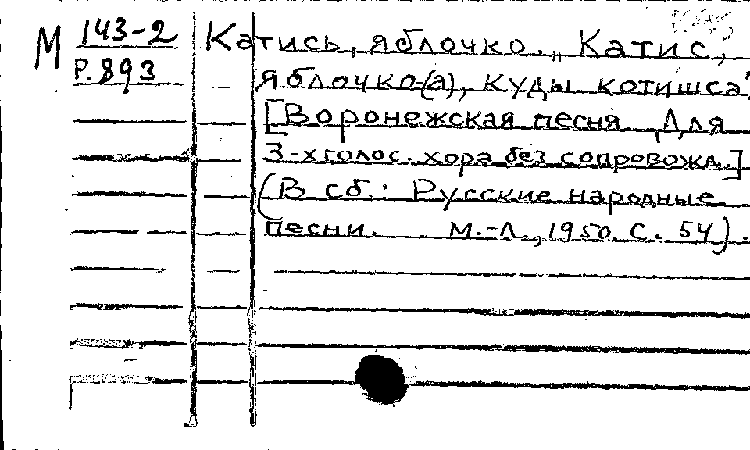 М 143-2
Р.893
Катись, яблочко. „Катис,
яблочко(а), куды котишса"
[Воронежская песня. Для
3-хголос. хора без сопровожд.]
(В сб.: Русские народные
песни. М.-Л., 1950. С. 54).